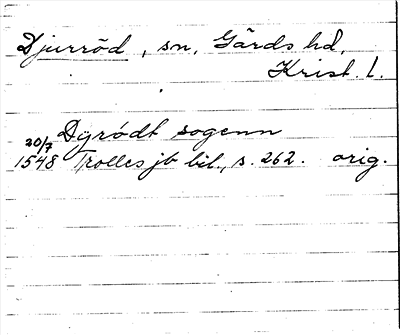 Djurröd, sn, Gärds hd,
Krist. l.
Dyrødt sogenn
20/7
1548 Trolles jb bil., s. 262. orig.